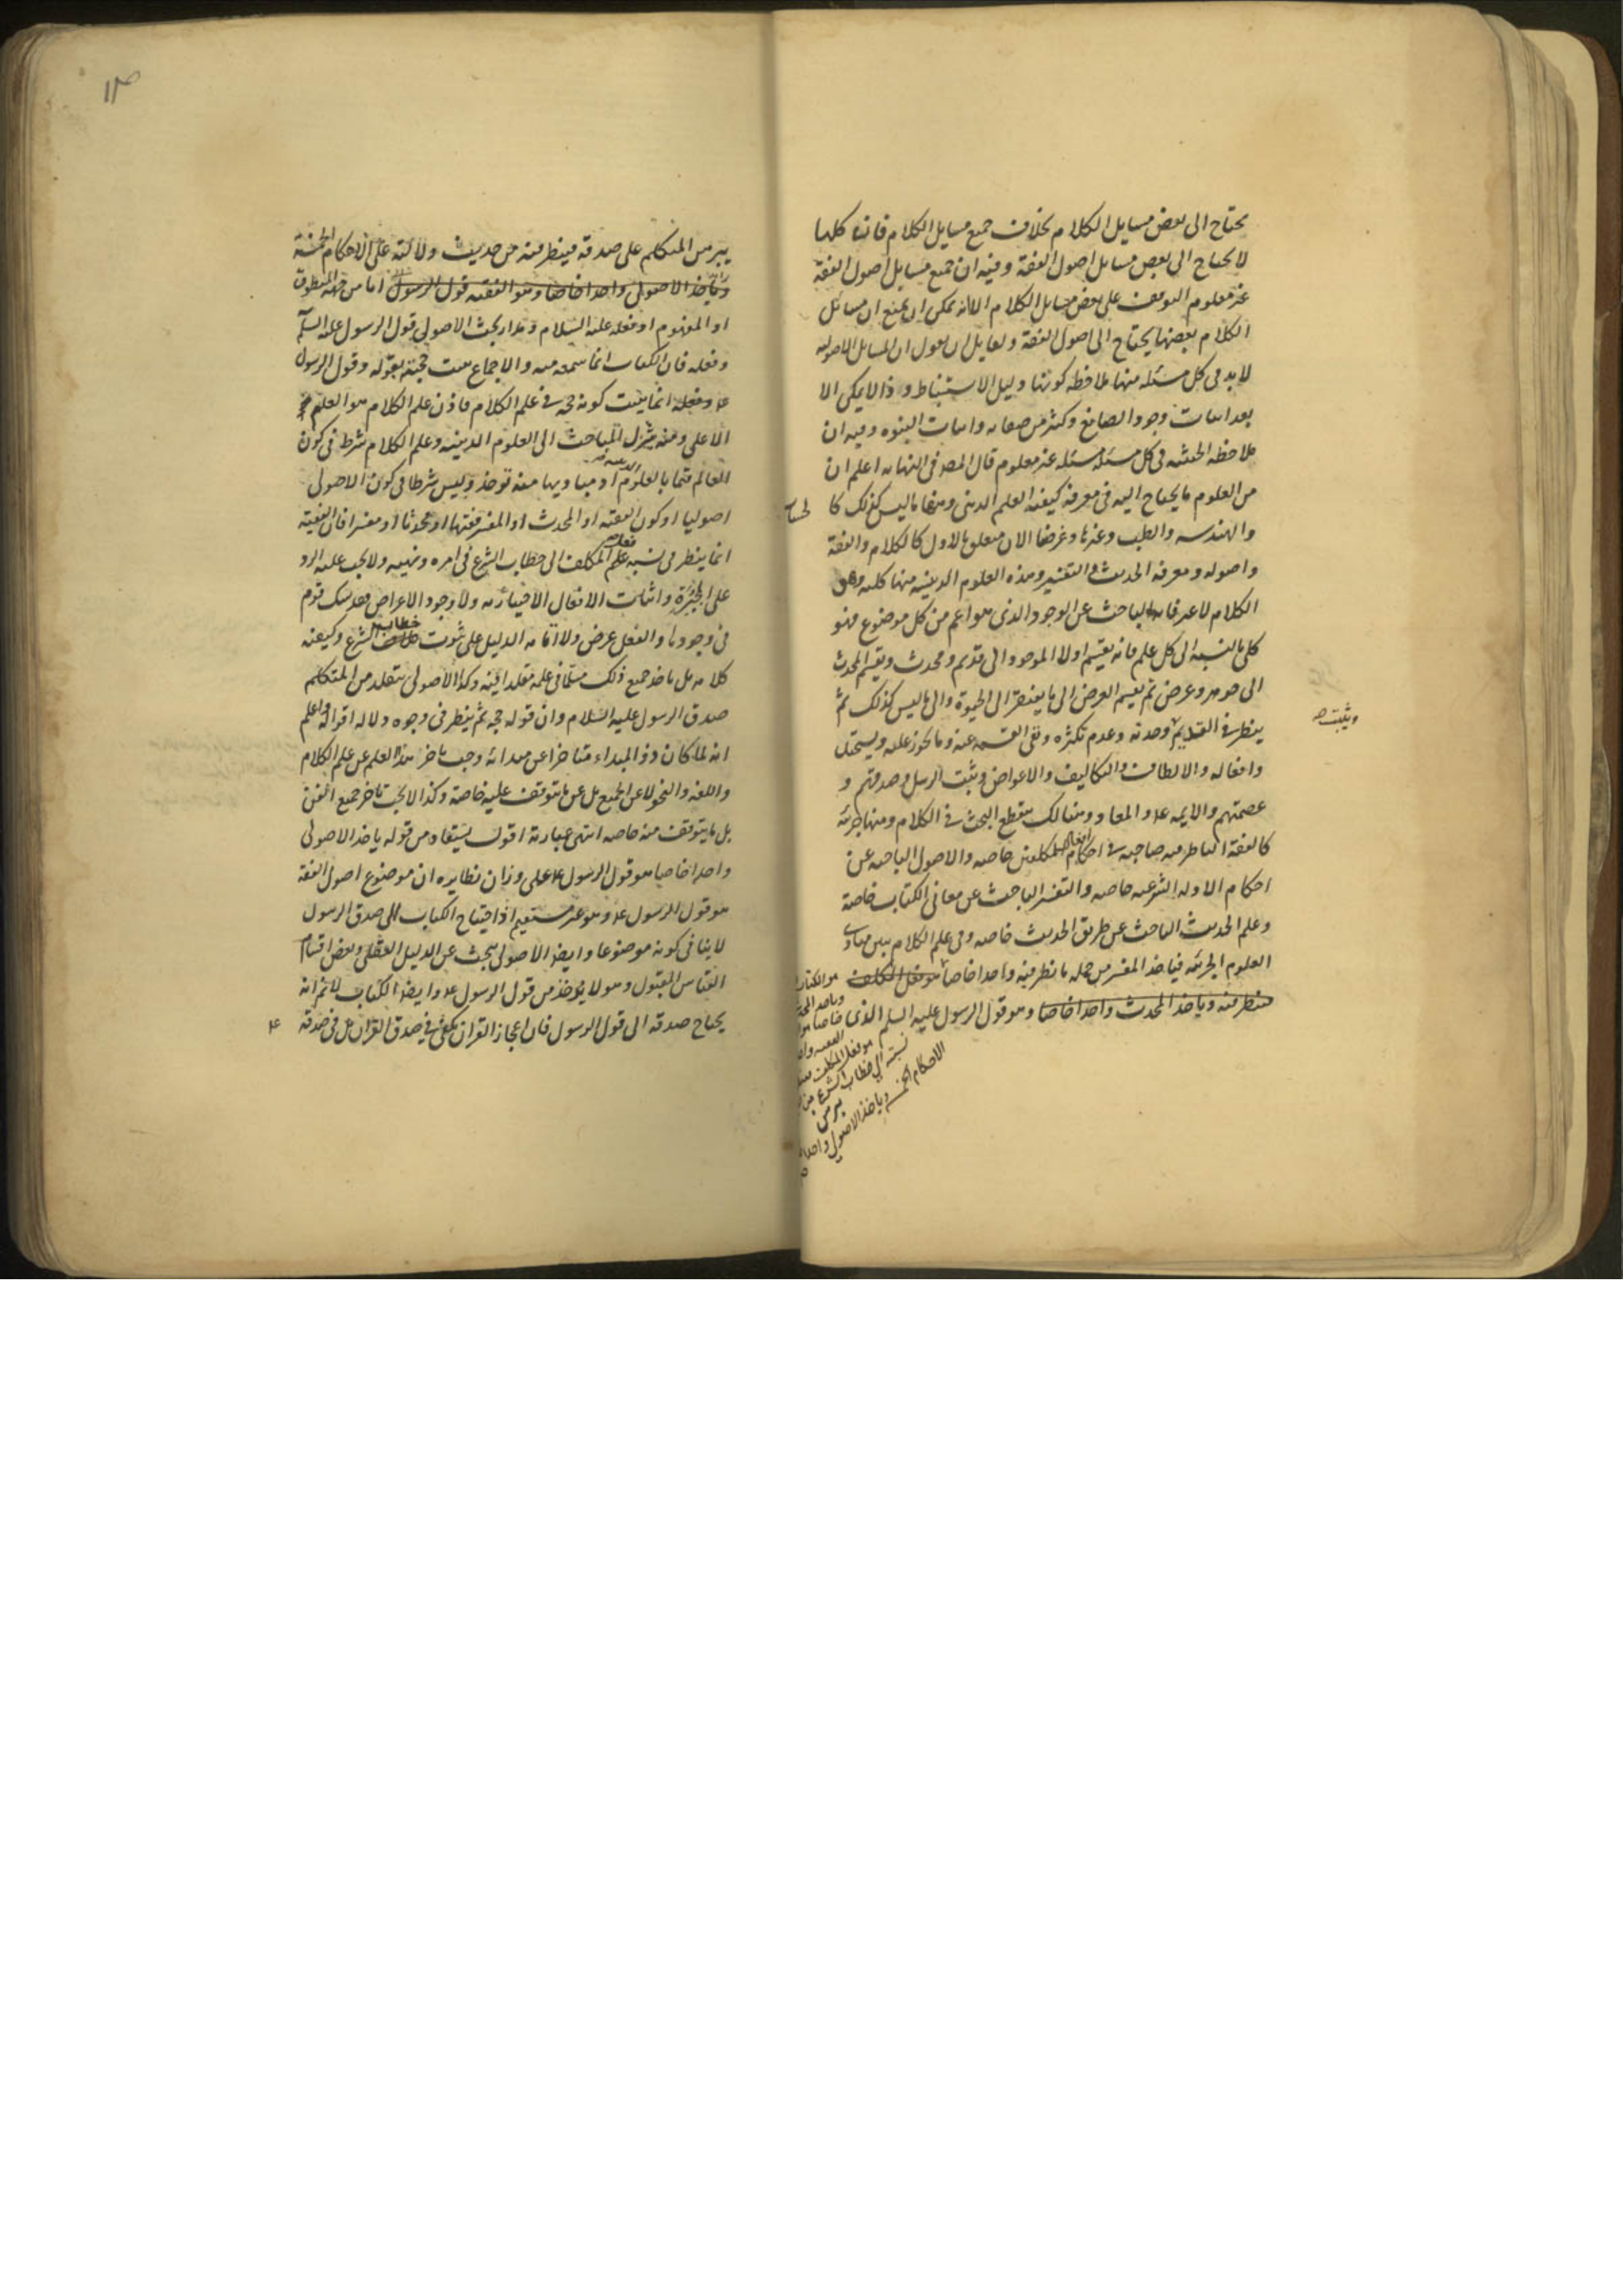 يحتاج الى بعض مسايل الكلام بخلاف جميع مسايل الكلام فانها كلها
لا يحتاج الى بعض مسايل اصول الفقه وفيه ان جميع مسايل اصول الفقه
غير معلوم التوقف على بعض مسايل الكلام الا انه يمكن ان يمنع ان مسائل
الكلام بعضها يحتاج الى اصول الفقه ولقايل ان يقول ان المسايل الاصوليه
لا بد فى كل مسئله منها ملاحظه كونها دليل الاستنباط و ذا لا يمكن الا
بعد اثبات وجود الصانع وكثير من صفاته واثبات النبوه وفيه ان
ملاحظه الحيثيه فى كل مسئله مسئله غير معلوم قال المصـ فى النهايه اعلم ان
من العلوم ما يحتاج اليه فى معرفه كيفيه العلم الدينى ومنها ما ليس كذلك كا لحساب
والهندسه والطب وغيرها وغرضنا الان متعلق بالاول كالكلام والفقه
واصوله ومعرفه الحديث والتفسير وهذه العلوم الدينيه منها كليه وهى
الكلام لا غير فانه الباحث عن الوجود الذى هو اعم من كل موضوع فهو
كلى بالنسبه الى كل علم فانه يقسم اولا الموجود الى قديم ومحدث ويقسم المحدث
الى جوهر وعرض ثم يقسم العرض الى ما يفتقر الى الحيوة والى ما ليس كذلك ثم
ينظر فى القديم ويثبت صـ وحدته وعدم تكثره ونفى القسمه عنه وما يجوز عليه ويستحيل
وافعاله والالطاف والتكاليف والاعواض ويثبت الرسل وصدقهم و
عصمتهم والايمه ع والمعاد وهنالك ينقطع البحث فى الكلام ومنها جزئيه
كالفقه الناظر فيه صاحبه فى احكام افعال المكلفين خاصه والاصول الباحثه عن
احكام الادله الشرعيه خاصه والتفسير الباحث عن معانى الكتاب خاصة
وعلم الحديث الباحث عن طريق الحديث خاصه وفى علم الكلام يبين مبادى
العلوم الجزئيه فياخذ المفسر من جمله ما نظر فيه واحدا خاصا هو فعل المكلف
فينظر فيه وياخذ المحدث واحدا خاصا وهو قول الرسول عليه السلم الذى
هو الكتاب
وياخذ المحدث
خاصا هو
الفقيه واحدا
هو فعل المكلف فينظر
نسبته الى خطاب الشرع من
الاحكام الخمسه وياخذ الاصولى واحدا
يبرهن
يبرهن المتكلم على صدقه فينظر فيه من حديث دلالته على الاحكام الخمسة
وياخذ الاصولى واحدا خاصا وهو الفقيه قول الرسول اما من جهه المنطوق
او المفهوم او فعله عليه السلام ومدار بحث الاصولى قول الرسول عليه السلم
وفعله فان الكتاب انما سمعه منه والاجماع يثبت حجيته بقوله وقول الرسول
ع وفعله انما يثبت كونه حجه فى علم الكلام فاذن علم الكلام هو العلم
الاعلى ومنه ينزل المباحث الى العلوم الدينيه وعلم الكلام شرط فى كون
العالم قائما بالعلوم الدينيه اذ مباديها منه توخذ وليس شرطا فى كون الاصولى
اصوليا او كون الفقيه او المحدث او المفسر فقيها او محدثا او مفسرا فان الفقيه
انما ينظر فى نسبه فعل المكلف الى خطاب الشرع فى امره ونهيه ولا يجب عليه الرد
على المجبرة واثبات الافعال الاختياريه ولا وجود الاعراض فقد شك قوم
فى وجودها والفعل عرض ولا اقامه الدليل على ثبوت خطاب الشرع وكيفيه
كلامه بل ياخذ جميع ذلك مسلما فى علمه مقلدا فيه وكذا الاصولى يتقلد من المتكلم
صدق الرسول عليه السلام وان قوله حجه ثم ينظر فى وجوه دلاله اقواله واعلم
انه لما كان ذو المبداء متاخرا عن مبدائه وجب تاخر هذا العلم عن علم الكلام
واللغه والنحو لا عن الجميع بل عن ما يتوقف عليه خاصة وكذا لا يجب تاخر جميع الفن
بل ما يتوقف منه خاصه انتهى عبارته اقول يستفاد من قوله ياخذ الاصولى
واحدا خاصا هو قول الرسول ع على وزان نظايره ان موضوع اصول الفقه
هو قول الرسول ع وهو غير مستقيم اذ احتياج الكتاب الى صدق الرسول
لا ينافى كونه موضوعا وايضا الاصولى يبحث عن الدليل العقلى وبعض اقسام
القياس المقبول وهو لا يؤخذ من قول الرسول ع وايضا الكتاب لا نم انه
يحتاج صدقه الى قول الرسول فان اعجاز القران يكفى فى صدق القران بل فى صدقه ع